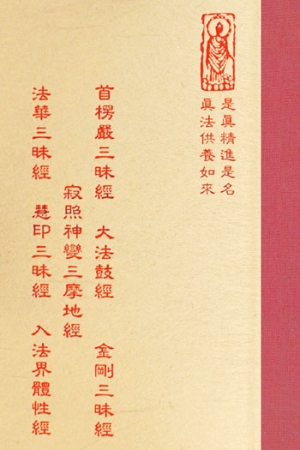 是真精進是名
真法供養如來
首楞嚴三昧經 大法鼓經 金剛三昧經
寂照神變三摩地經
法華三昧經 慧印三昧經 入法界體性經